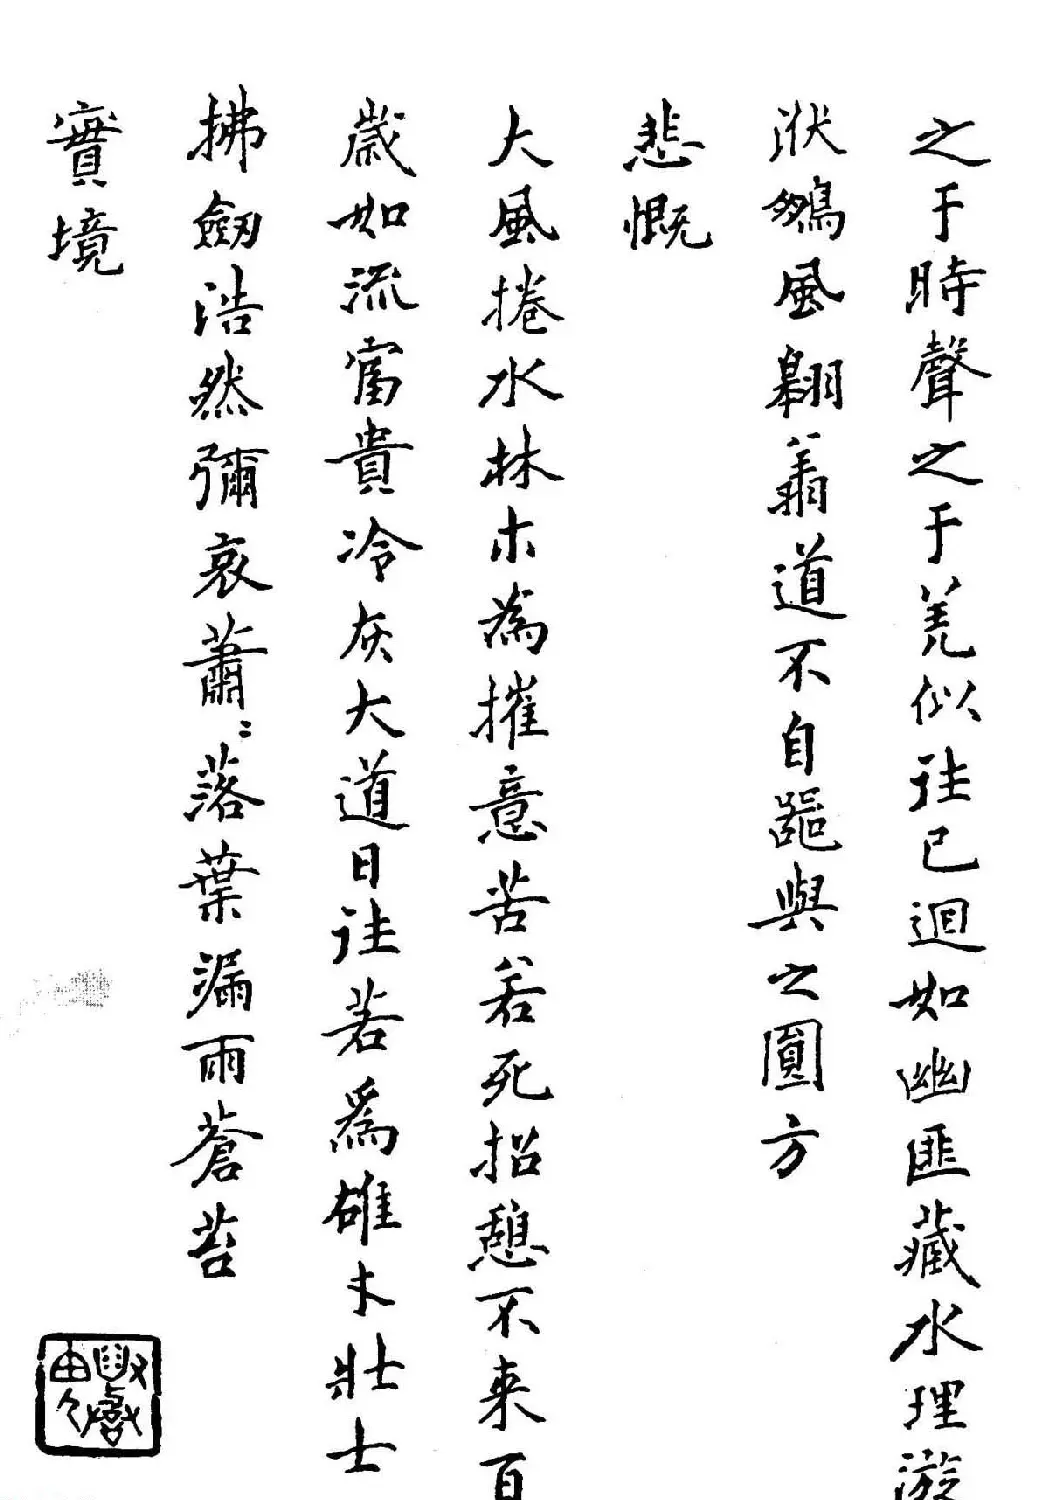 之于時聲之于羌似往已迴如幽匪藏水理漩
洑鵬風翱翔道不自器與之圓方
悲慨
大風捲水林木為摧意苦若死招憩不来百
歲如流富貴冷灰大道日往若為雄才壯士
拂劒浩然彌哀蕭〻落葉漏雨蒼苔
實境